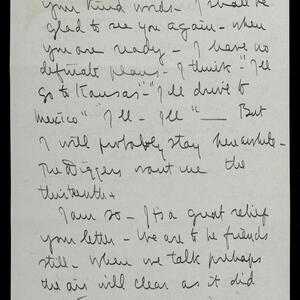 your kind words - I shall be
glad to see you again - when
you are ready - I have no
definate plans - I think "I'll
go to Kansas" - "I'll drive to
Mexico" "I'll - I'll " — But
I will probably stay here awhile -
The Diggers want me the
thirteenth +
I am so - It's a great relief
your letter - We are to be friends
still - When we talk perhaps
the air will clear as it did